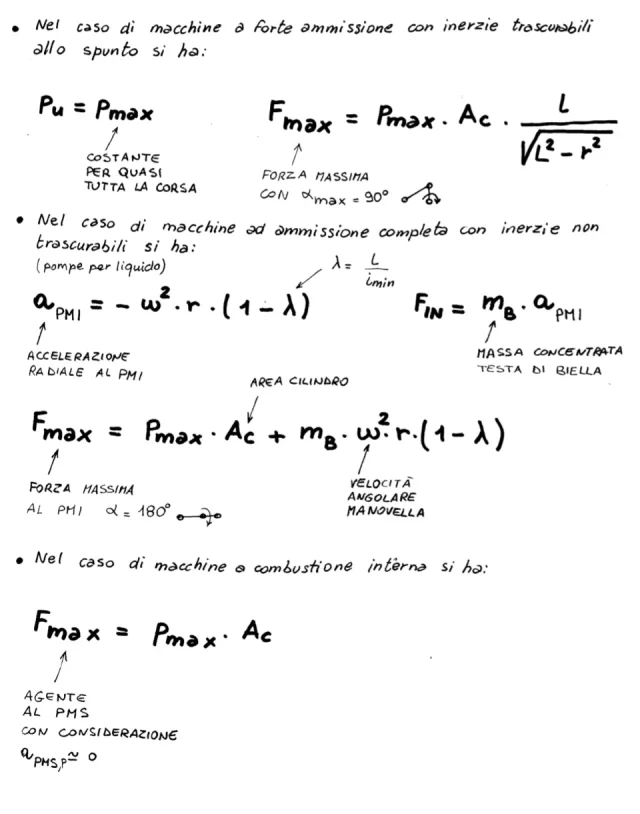 • Nel caso di macchine a forte ammissione con inerzie trascurabili
allo spunto si ha:
Pu = Pmax
COSTANTE
PER QUASI
TUTTA LA CORSA
Fmax = Pmax · Ac · L / √(L² - r²)
FORZA MASSIMA
CON αmax = 90°
• Nel caso di macchine ad ammissione completa con inerzie non
trascurabili si ha:
(pompe per liquido)
λ = L / imin
aPMI = - ω² · r · (1 - λ)
FIN = mB · aPMI
ACCELERAZIONE
RADIALE AL PMI
MASSA CONCENTRATA
TESTA DI BIELLA
AREA CILINDRO
Fmax = Pmax · Ac + mB · ω² · r · (1 - λ)
FORZA MASSIMA
AL PMI α = 180°
VELOCITÀ
ANGOLARE
MANOVELLA
• Nel caso di macchine a combustione interna si ha:
Fmax = Pmax · Ac
AGENTE
AL PMS
CON CONSIDERAZIONE
aPMS,P ≃ 0